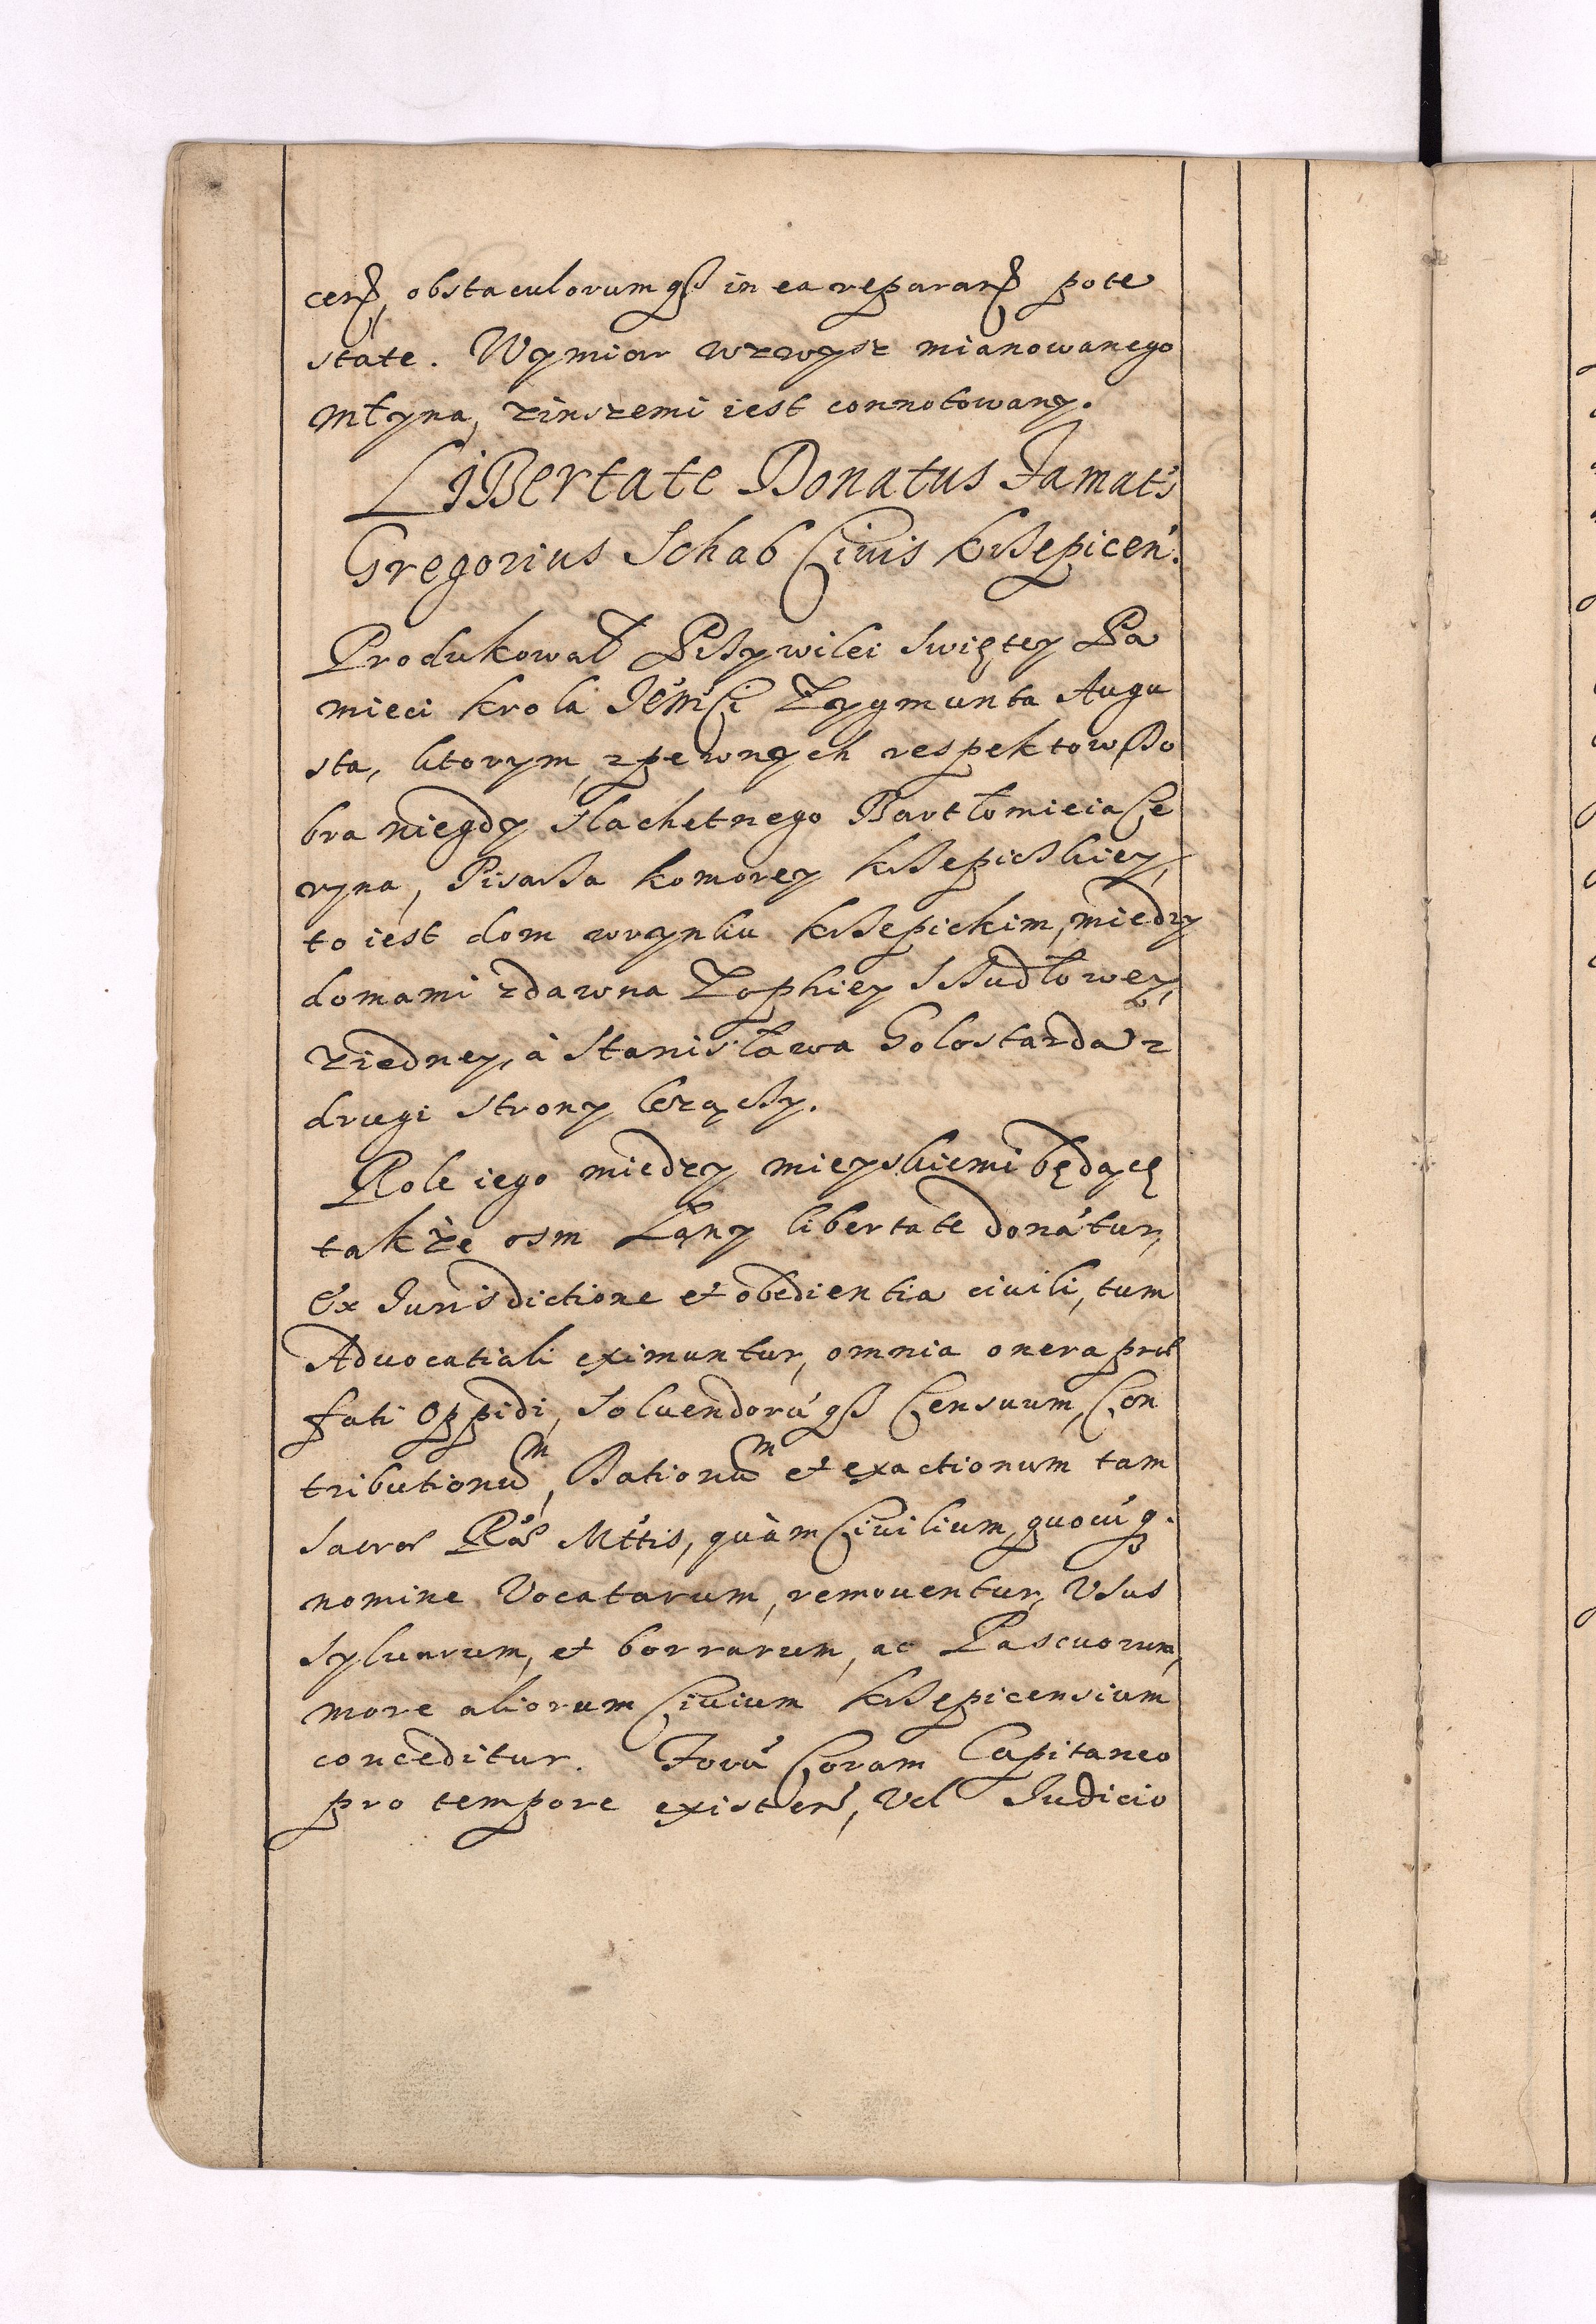 cen, obstaculorum qß in ea reparan pote
state. Wymiar wzwysz mianowanego
młyna, zinszemi iest connotowany.
LIBertate Donatus Famats
Gregorius Schab Civis Krzepicen.
Produkował Przywilei swiętey Pa
mieci krola JeMści Zygmunta Augu
sta, ktorym, zpewnych respektow, do
bra niegdy slachetnego Bartłomieia Ce
ryna, Pisarza komorey krzepickiey,
to iest dom wrynku krzepickim, miedzy
domami zdawna Zophiey Skudłowey,
ziedney, à Stanisława Golostarda z
drugi strony lezączy.
Role iego miedzy mieyskiemi będącę
takze osm Łąny libertate donatur,
ex Jurisdictione et obedientia ciuili, tum
Aduocatiali eximuntur, omnia onera præ
fati Oppidi, soluendorú qß Censuum, Con
tributionum, Rationum et exactionum tam
sacræ Ræ Mttis, quàm Ciuilium, quocúq.
nomine Vocatarum, remouentur, Vsus
syluarum, et borrarum, ac Pascuorum,
more aliorum Ciuium krzepicensium
conceditur. Forú Coram Capitaneo
pro tempore existen, Vel Judicio